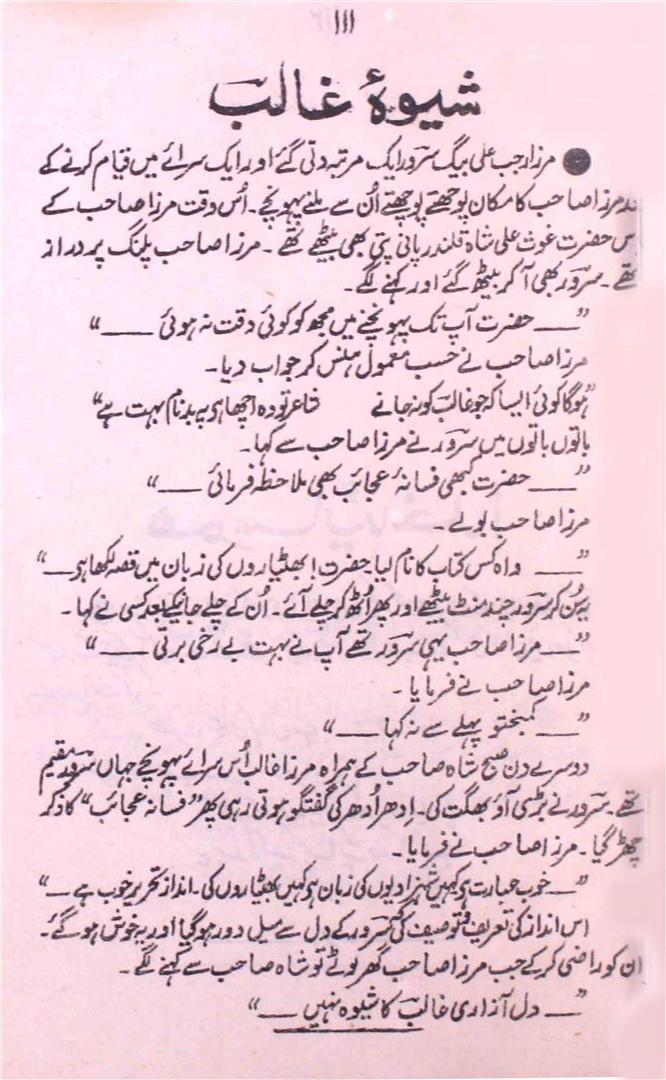 ۱۱۱
شیوۂ غالب
مرزا رجب علی بیگ سرور ایک مرتبہ دتی گئے اور ایک سرائے میں قیام کرنے کے
مرزا صاحب کا مکان پوچھتے پوچھتے اُن سے ملنے پہونچے۔ اُس وقت مرزا صاحب کے
س حضرت غوث علی شاہ قلندر پانی پتی بھی بیٹھے تھے۔ مرزا صاحب پلنگ پر دراز
تھے۔ سرور بھی آ کر بیٹھ گئے اور کہنے لگے۔
”— حضرت آپ تک پہونچنے میں مجھ کو کوئی دقت نہ ہوئی —“
مرزا صاحب نے حسب معمول ہنس کر جواب دیا۔
”ہوگا کوئی ایسا کہ جو غالب کو نہ جانے شاعر تو وہ اچھا ہی پہ بدنام بہت ہے“
باتوں باتوں میں سرور نے مرزا صاحب سے کہا۔
”— حضرت کبھی فسانۂ عجائب بھی ملاحظہ فرمائی —“
مرزا صاحب بولے۔
”— واہ کس کتاب کا نام لیا۔ حضرت! بھٹیاروں کی زبان میں قصہ لکھا ہی —“
یہ سُن کر سرور چند منٹ بیٹھے اور پھر اُٹھ کر چلے آئے۔ اُن کے چلے جانیکے بعد کسی نے کہا۔
”— مرزا صاحب یہی سرور تھے آپ نے بہت بے رخی برتی —“
مرزا صاحب نے فرمایا۔
”— کمبختو پہلے سے نہ کہا —“
دوسرے دن صبح شاہ صاحب کے ہمراہ مرزا غالب اُس سرائے پہونچے جہاں سرور مقیم
تھے۔ سرور نے بڑی آؤ بھگت کی۔ اِدھر اُدھر کی گفتگو ہوتی رہی پھر ”فسانہ عجائب“ کا ذکر
چھڑ گیا۔ مرزا صاحب نے فرمایا۔
”— خوب عبارت ہی کہیں شہزادیوں کی زبان ہی کہیں بھٹیاروں کی۔ انداز تحریر خوب ہے —“
اس انداز کی تعریف و توصیف کی کہ سرور کے دل سے میل دور ہو گیا اور یہ خوش ہو گئے۔
ان کو راضی کر کے جب مرزا صاحب گھر لوٹے تو شاہ صاحب سے کہنے لگے۔
”— دل آزاری غالب کا شیوہ نہیں —“